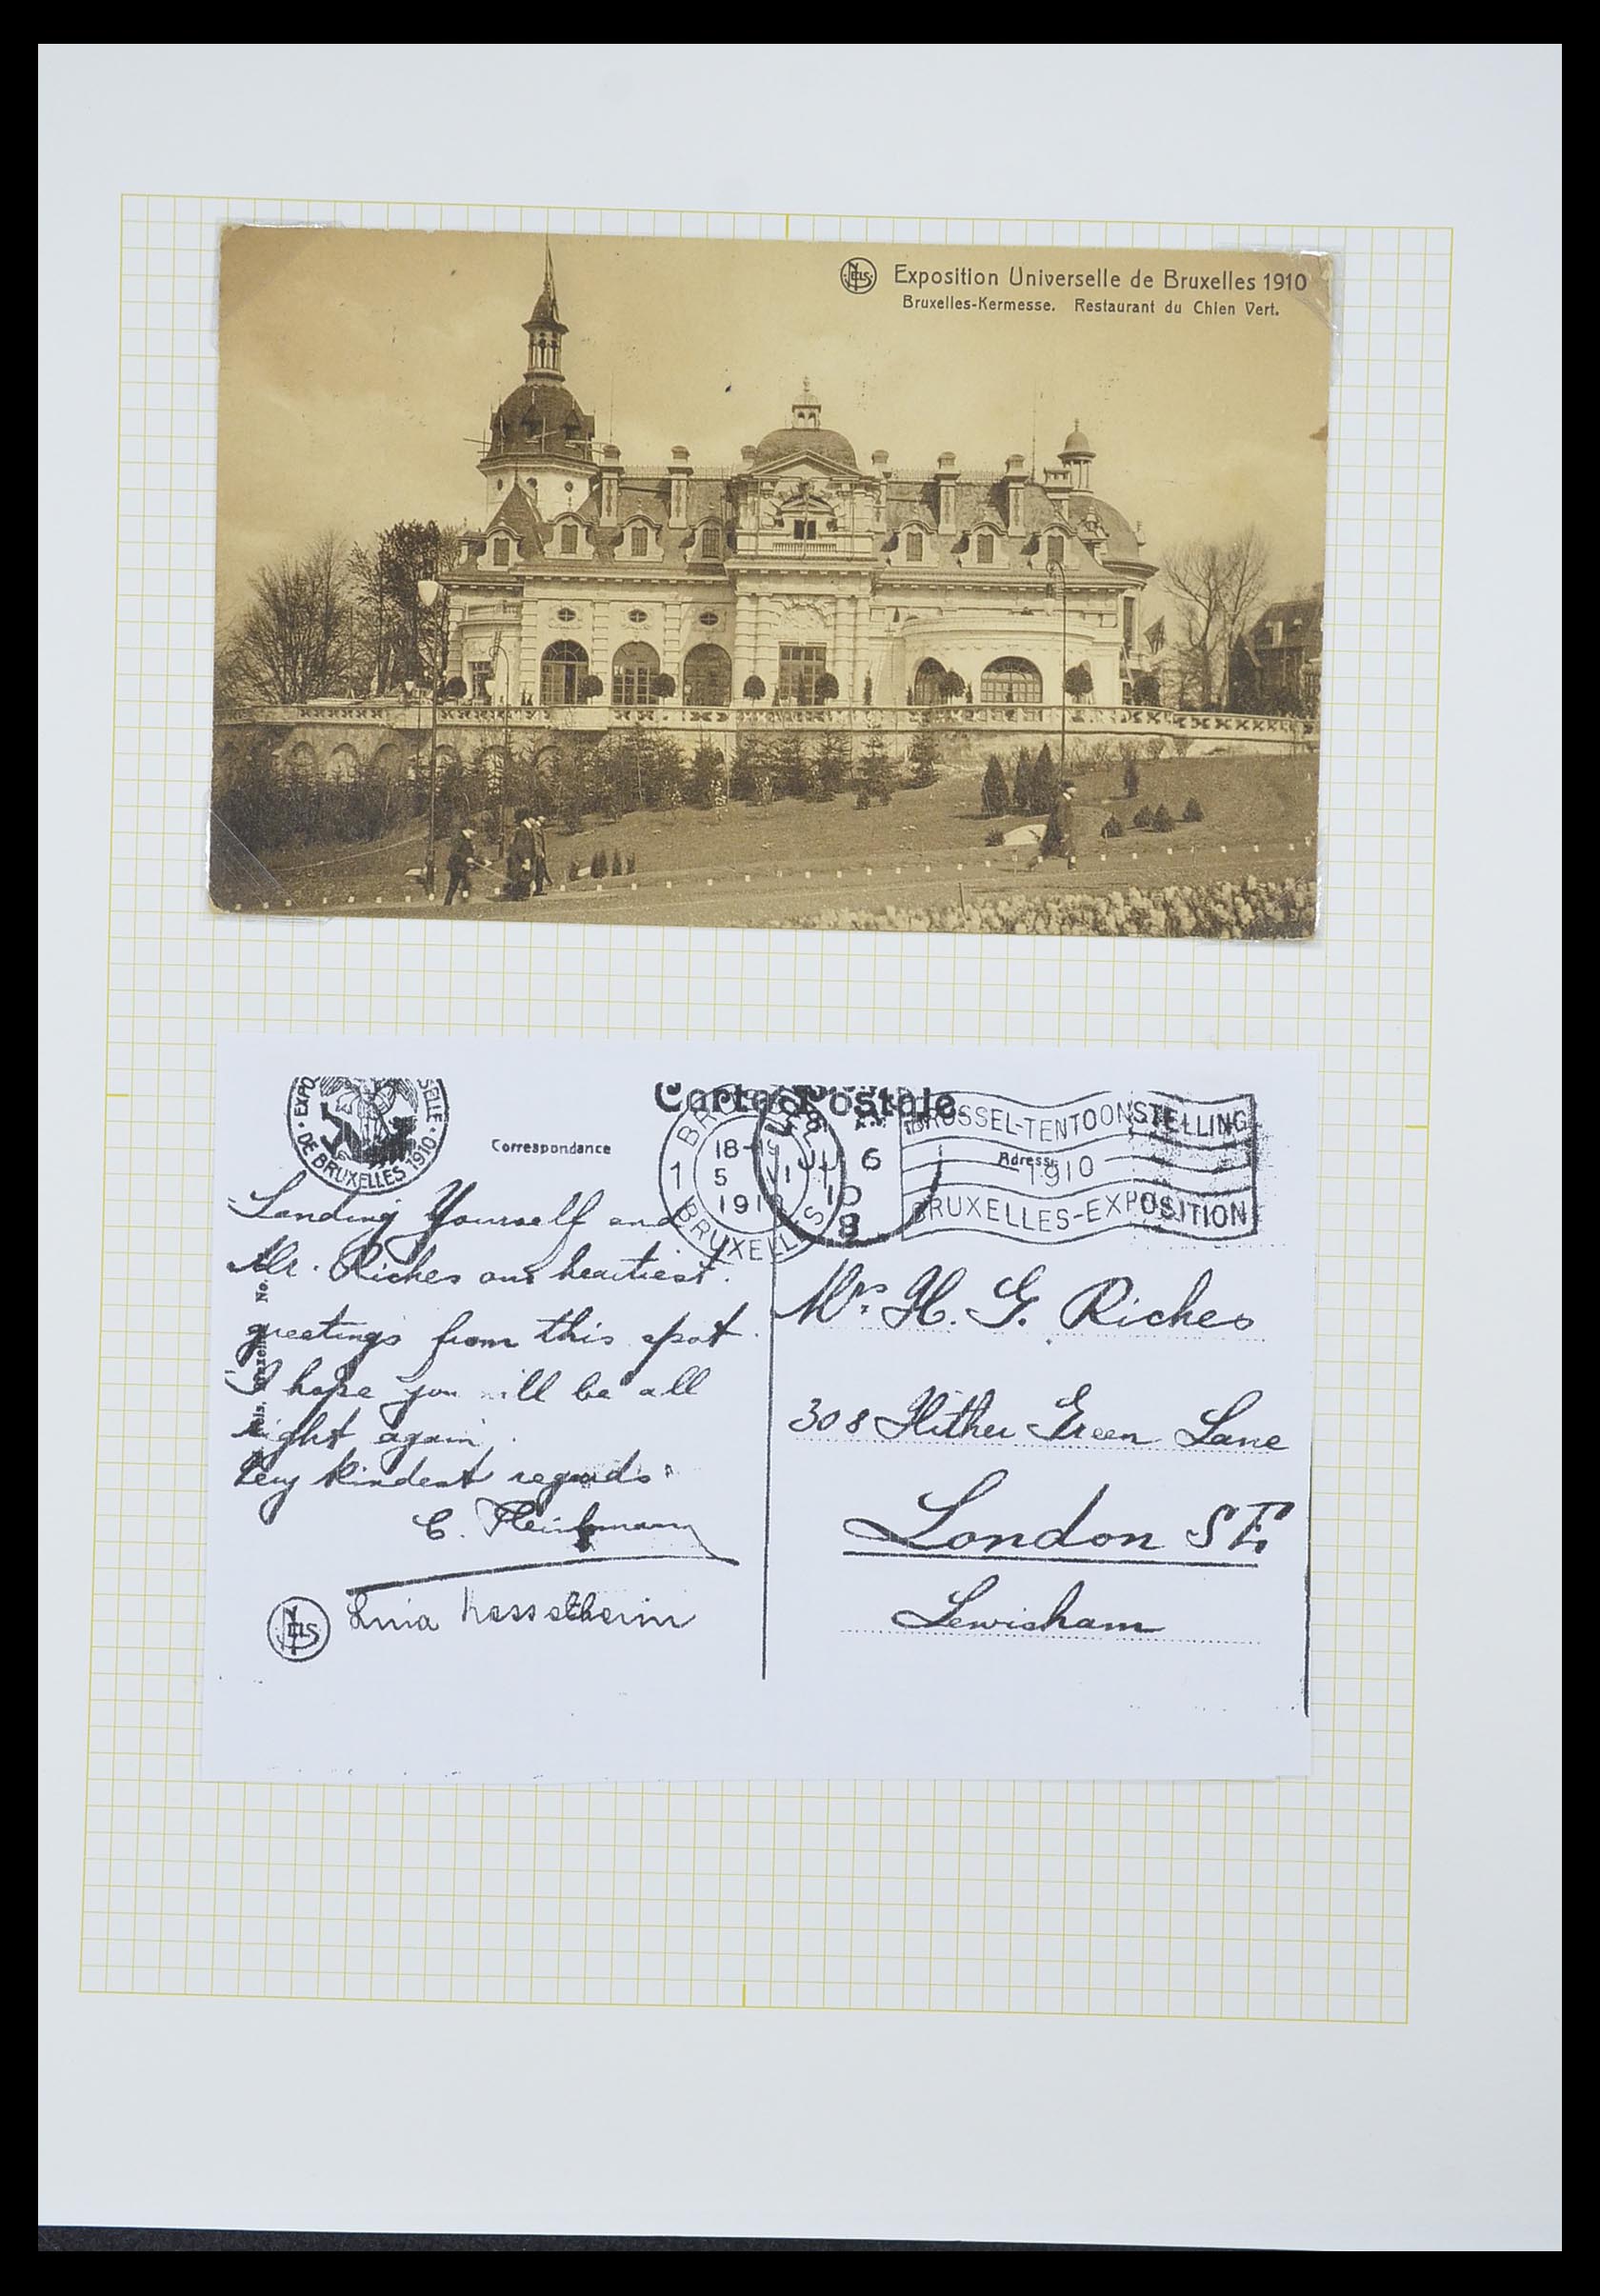 NELS
Exposition Universelle de Bruxelles 1910
Bruxelles-Kermesse. Restaurant du Chien Vert.
EXPO SELLE
DE BRUXELLES 1910
Carte Postale
Correspondance
Adresse
1 BRUXELLES
18-
5 VI
1910
JU 6
10
8
BRUSSEL-TENTOONSTELLING
1910
BRUXELLES-EXPOSITION
Sending Yourself and
Mr. Riches our heartiest
greetings from this spot.
I hope you will be all
right again.
Very kindest regards.
C.
NELS
No.
Mrs H. G. Riches
308 Hither Green Lane
London S E.
Lewisham